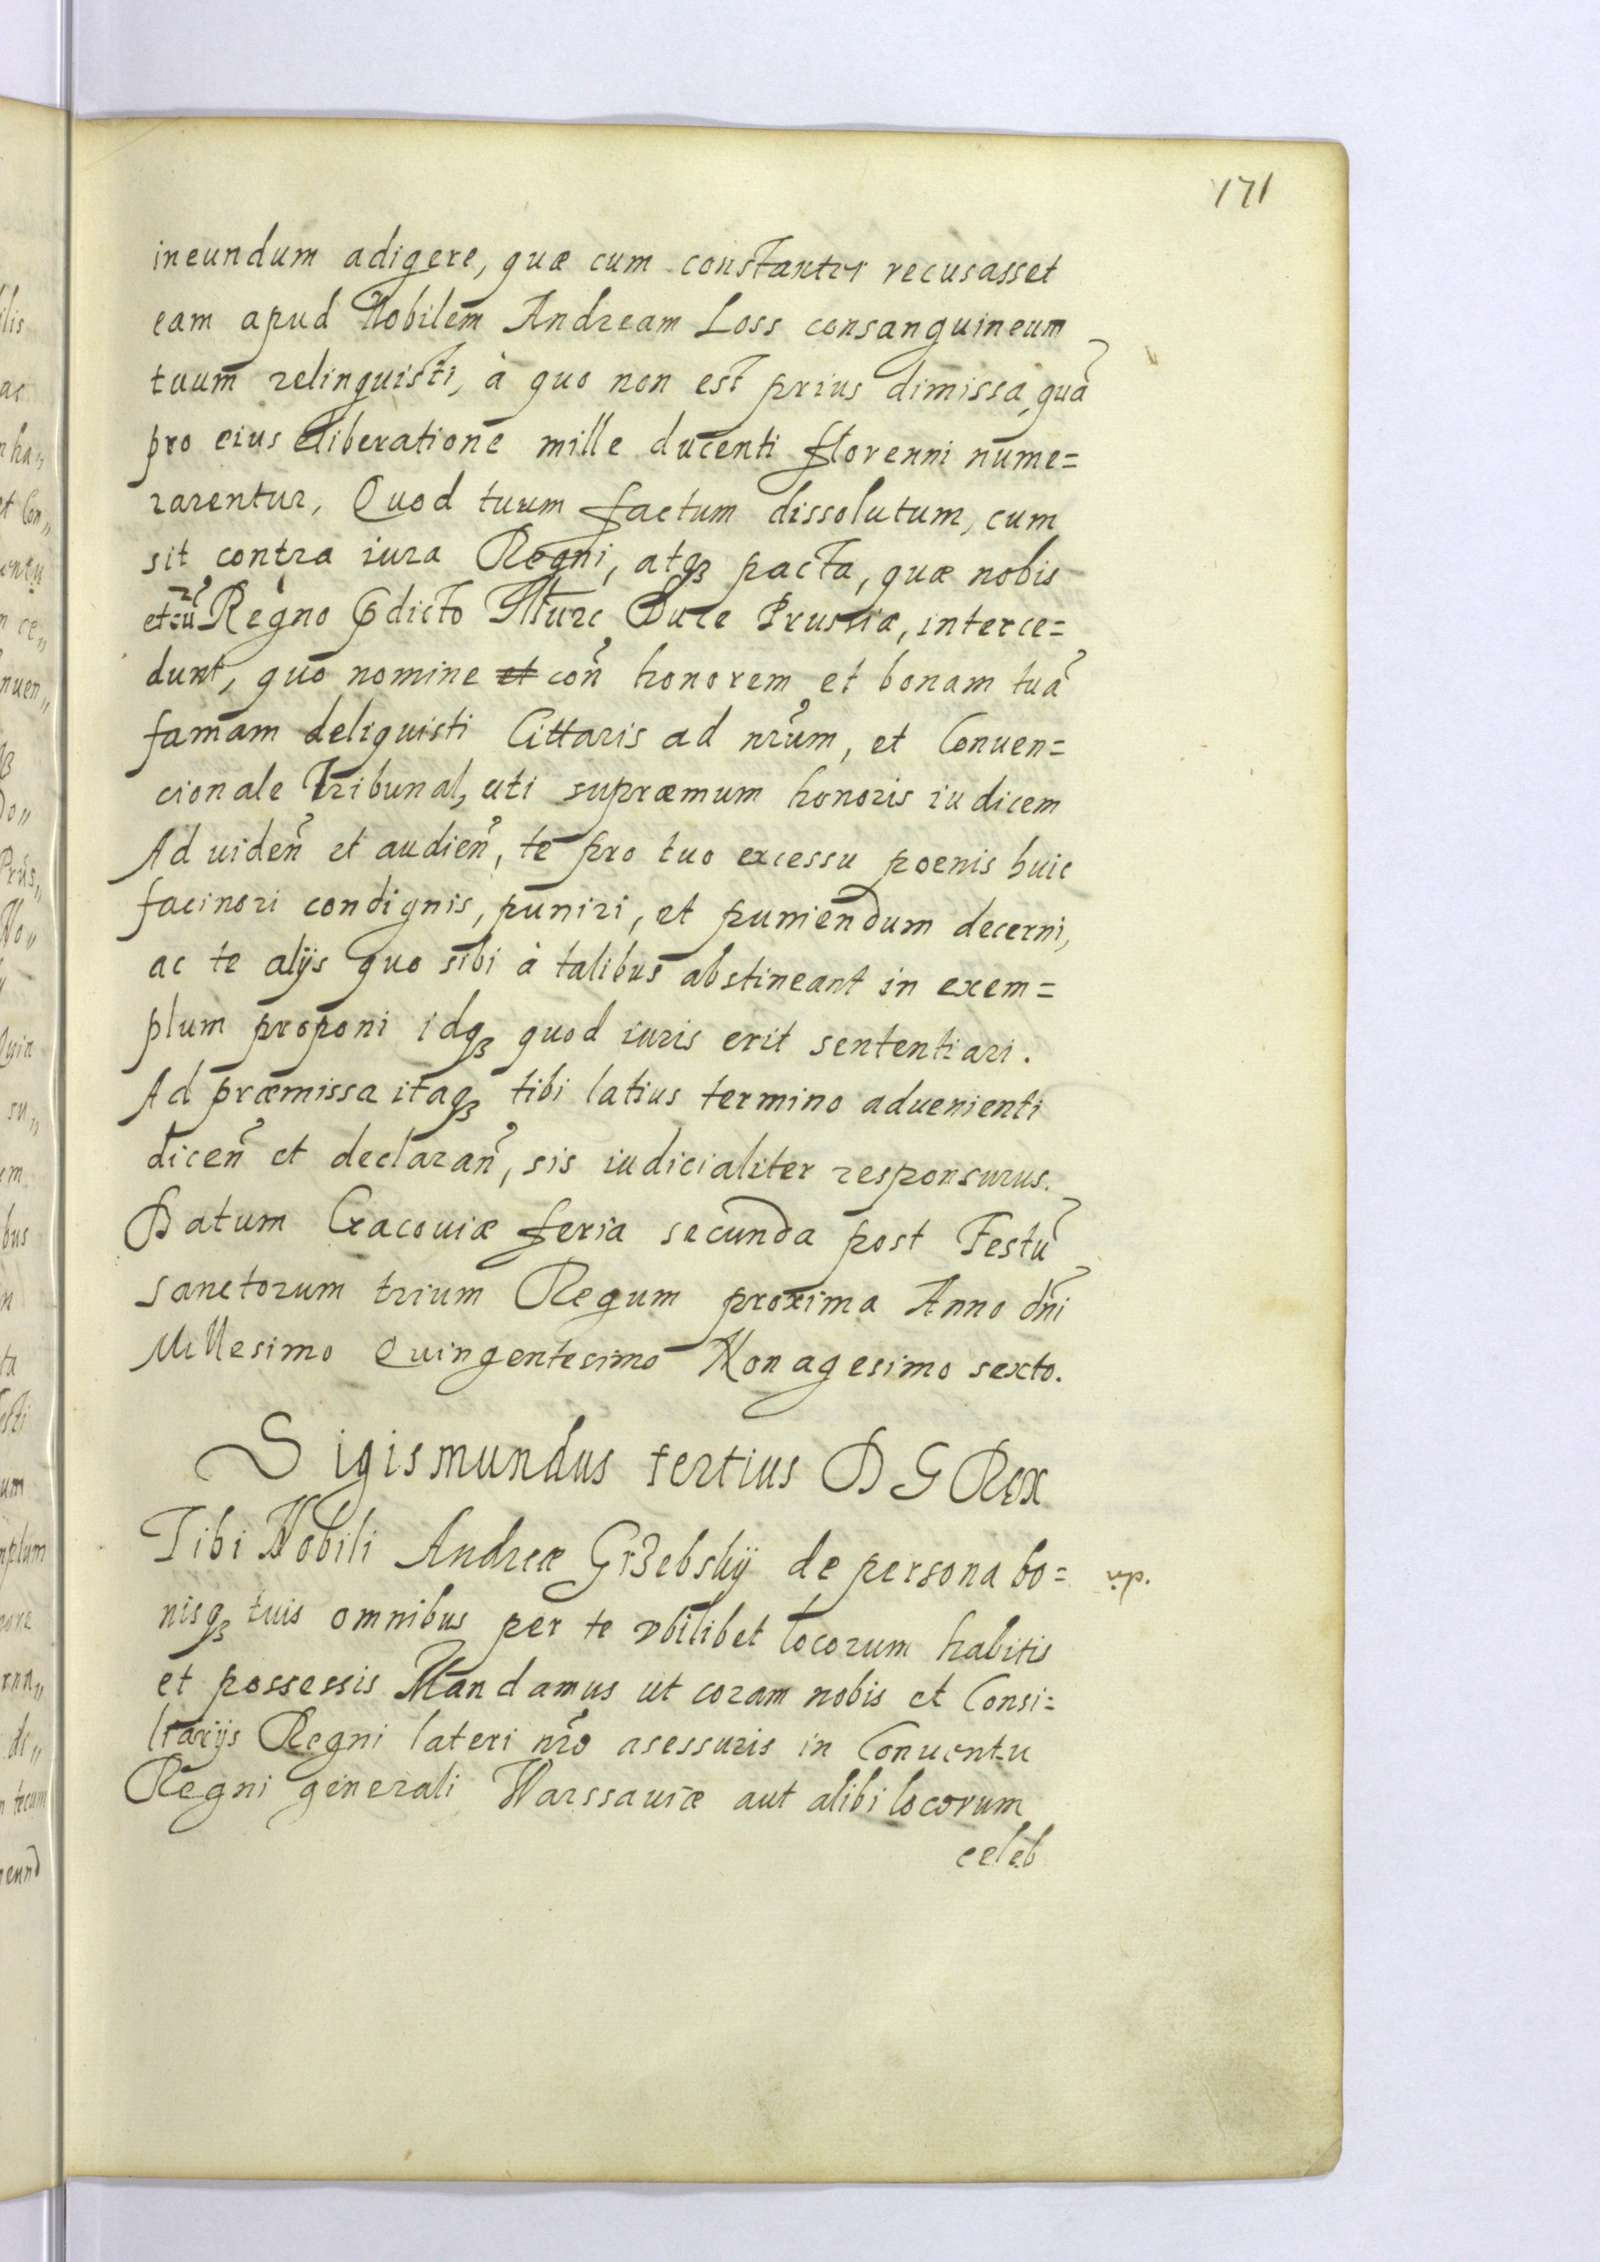 171
ineundum adigere, quæ cum constanter recusasset
eam apud Nobilem Andream Loss consanguineum
tuum relinquisti, à quo non est prius dimissa, quã
pro eius eliberatione mille ducenti florenni nume=
rarentur, Quod tuum factum dissolutum, cum
sit contra iura Regni, atqꝫ pacta, quæ nobis
et cũ Regno dicto Duce Prussiæ, interce=
dunt, quo nomine et coñ honorem et bonam tuã
famam deliquisti Cittaris ad nr̃um, et Conuen=
cionale Tribunal, uti supræmum honoris iudicem
Ad uideñ et audieñ, te pro tuo excessu poenis huic
facinori condignis, puniri, et puniendum decerni,
ac te alijs quo sibi à talibus abstineant in exem=
plum proponi idqꝫ quod iuris erit sententiari.
Ad præmissa itaqꝫ tibi latius termino aduenienti
diceñ et declarañ, sis iudicialiter responsurus.
Datum Cracouiæ feria secunda post Festũ
sanctorum trium Regum proxima Anno dñi
Millesimo Quingentesimo Nonagesimo sexto.
Sigismundus tertius D G Rex
Tibi Nobili Andreæ Grzebskij de persona bo=
nisqꝫ tuis omnibus per te vbilibet locorum habitis
et possessis Mandamus ut coram nobis et Consi=
liarijs Regni lateri nr̃o asessuris in Conuentu
Regni generali Warssauiæ aut alibi locorum
celeb